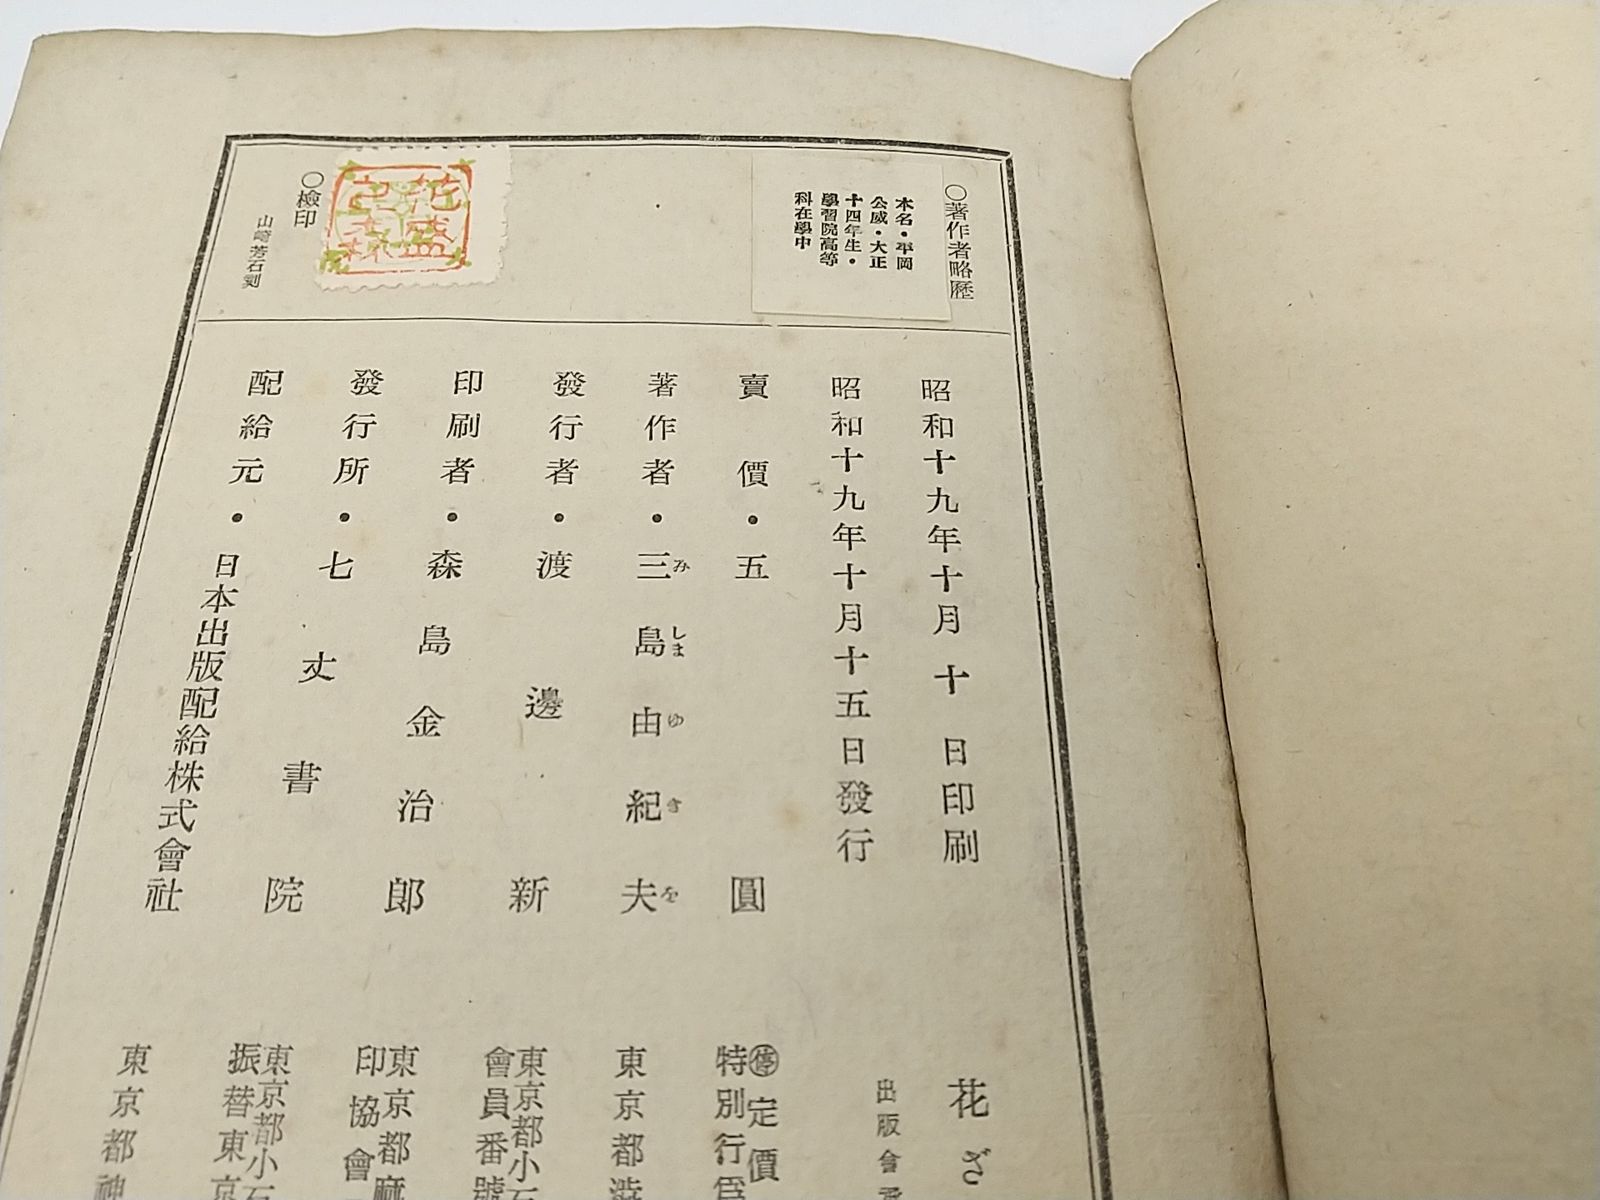 ○著作者略歴
本名・平岡
公威・大正
十四年生・
學習院高等
科在學中
花盛
之森
○檢印
山崎芳石刻
昭和十九年十月十日印刷
昭和十九年十月十五日發行
賣價・五圓
著作者・三島由紀夫
みしまゆきを
發行者・渡邊新
印刷者・森島金治郎
發行所・七丈書院
配給元・日本出版配給株式會社
花ざ
出版會
停定價
特別行
東京都澁
東京都小石
會員番號
東京都麻
印協會
東京都小石
振替東京
東京都神